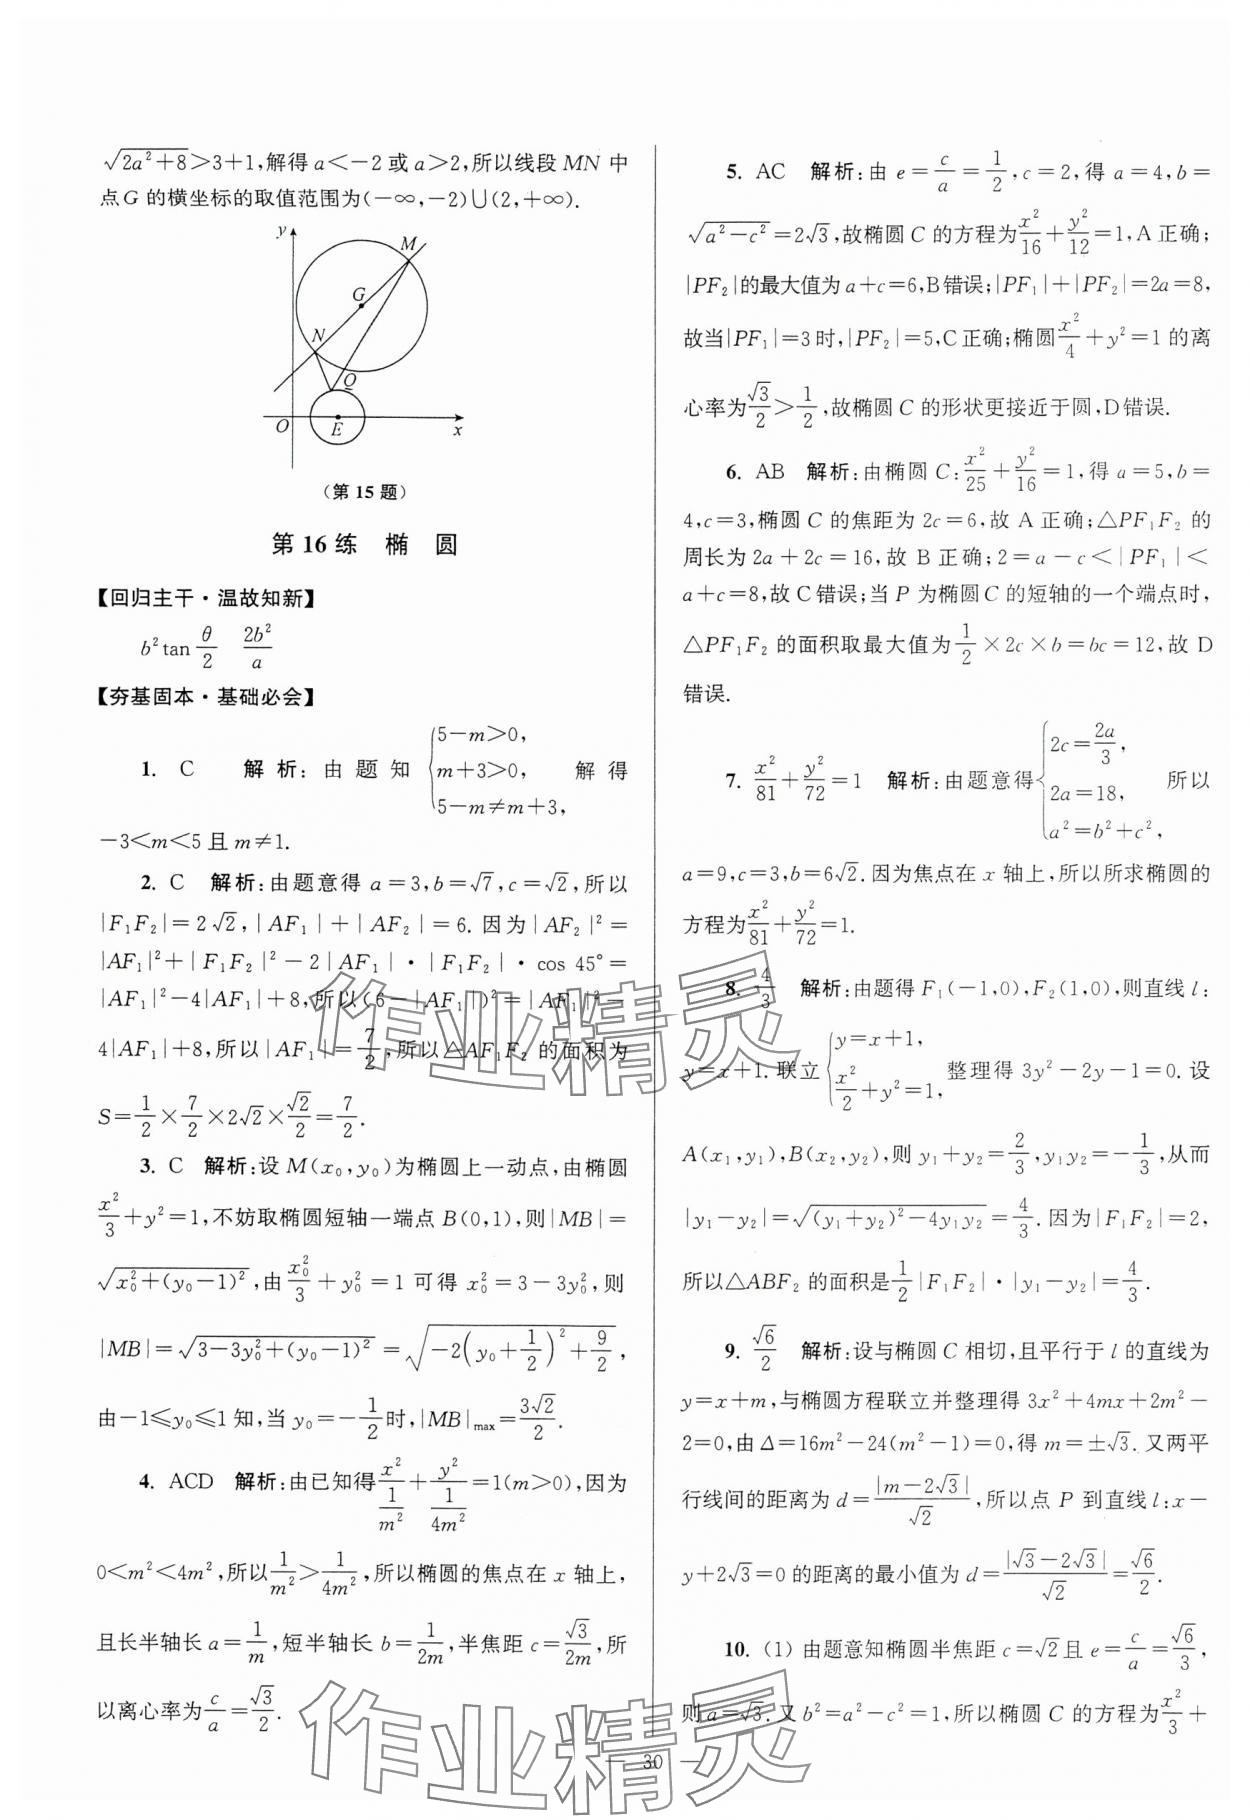 √(2a²+8)>3+1,解得a<-2或a>2,所以线段MN中
点G的横坐标的取值范围为(-∞,-2)∪(2,+∞).
y
M
G
N
Q
O
E
x
(第15题)
第16练 椭 圆
【回归主干·温故知新】
b²tan θ/2  2b²/a
【夯基固本·基础必会】
1. C 解析:由题知 {5-m>0, m+3>0, 5-m≠m+3, 解得
-3<m<5且m≠1.
2. C 解析:由题意得a=3,b=√7,c=√2,所以
|F₁F₂|=2√2,|AF₁|+|AF₂|=6.因为|AF₂|²=
|AF₁|²+|F₁F₂|²-2|AF₁|·|F₁F₂|·cos 45°=
|AF₁|²-4|AF₁|+8,所以(6-|AF₁|)²=|AF₁|²-
4|AF₁|+8,所以|AF₁|=7/2,所以△AF₁F₂的面积为
S=1/2×7/2×2√2×√2/2=7/2.
3. C 解析:设M(x₀,y₀)为椭圆上一动点,由椭圆
x²/3+y²=1,不妨取椭圆短轴一端点B(0,1),则|MB|=
√(x₀²+(y₀-1)²),由x₀²/3+y₀²=1可得x₀²=3-3y₀²,则
|MB|=√(3-3y₀²+(y₀-1)²)=√(-2(y₀+1/2)²+9/2),
由-1≤y₀≤1知,当y₀=-1/2时,|MB|max=3√2/2.
4. ACD 解析:由已知得x²/(1/m²)+y²/(1/4m²)=1(m>0),因为
0<m²<4m²,所以1/m²>1/4m²,所以椭圆的焦点在x轴上,
且长半轴长a=1/m,短半轴长b=1/2m,半焦距c=√3/2m,所
以离心率为c/a=√3/2.
5. AC 解析:由e=c/a=1/2,c=2,得a=4,b=
√(a²-c²)=2√3,故椭圆C的方程为x²/16+y²/12=1,A正确;
|PF₂|的最大值为a+c=6,B错误;|PF₁|+|PF₂|=2a=8,
故当|PF₁|=3时,|PF₂|=5,C正确;椭圆x²/4+y²=1的离
心率为√3/2>1/2,故椭圆C的形状更接近于圆,D错误.
6. AB 解析:由椭圆C:x²/25+y²/16=1,得a=5,b=
4,c=3,椭圆C的焦距为2c=6,故A正确;△PF₁F₂的
周长为2a+2c=16,故B正确;2=a-c<|PF₁|<
a+c=8,故C错误;当P为椭圆C的短轴的一个端点时,
△PF₁F₂的面积取最大值为1/2×2c×b=bc=12,故D
错误.
7. x²/81+y²/72=1 解析:由题意得{2c=2a/3, 2a=18, a²=b²+c², 所以
a=9,c=3,b=6√2.因为焦点在x轴上,所以所求椭圆的
方程为x²/81+y²/72=1.
8. 4/3 解析:由题得F₁(-1,0),F₂(1,0),则直线l:
y=x+1.联立{y=x+1, x²/2+y²=1, 整理得3y²-2y-1=0.设
A(x₁,y₁),B(x₂,y₂),则y₁+y₂=2/3,y₁y₂=-1/3,从而
|y₁-y₂|=√((y₁+y₂)²-4y₁y₂)=4/3.因为|F₁F₂|=2,
所以△ABF₂的面积是1/2|F₁F₂|·|y₁-y₂|=4/3.
9. √6/2 解析:设与椭圆C相切,且平行于l的直线为
y=x+m,与椭圆方程联立并整理得3x²+4mx+2m²-
2=0,由Δ=16m²-24(m²-1)=0,得m=±√3.又两平
行线间的距离为d=|m-2√3|/√2,所以点P到直线l:x-
y+2√3=0的距离的最小值为d=|√3-2√3|/√2=√6/2.
10. (1) 由题意知椭圆半焦距c=√2且e=c/a=√6/3,
则a=√3.又b²=a²-c²=1,所以椭圆C的方程为x²/3+
— 30 —
作业精灵
作业精灵